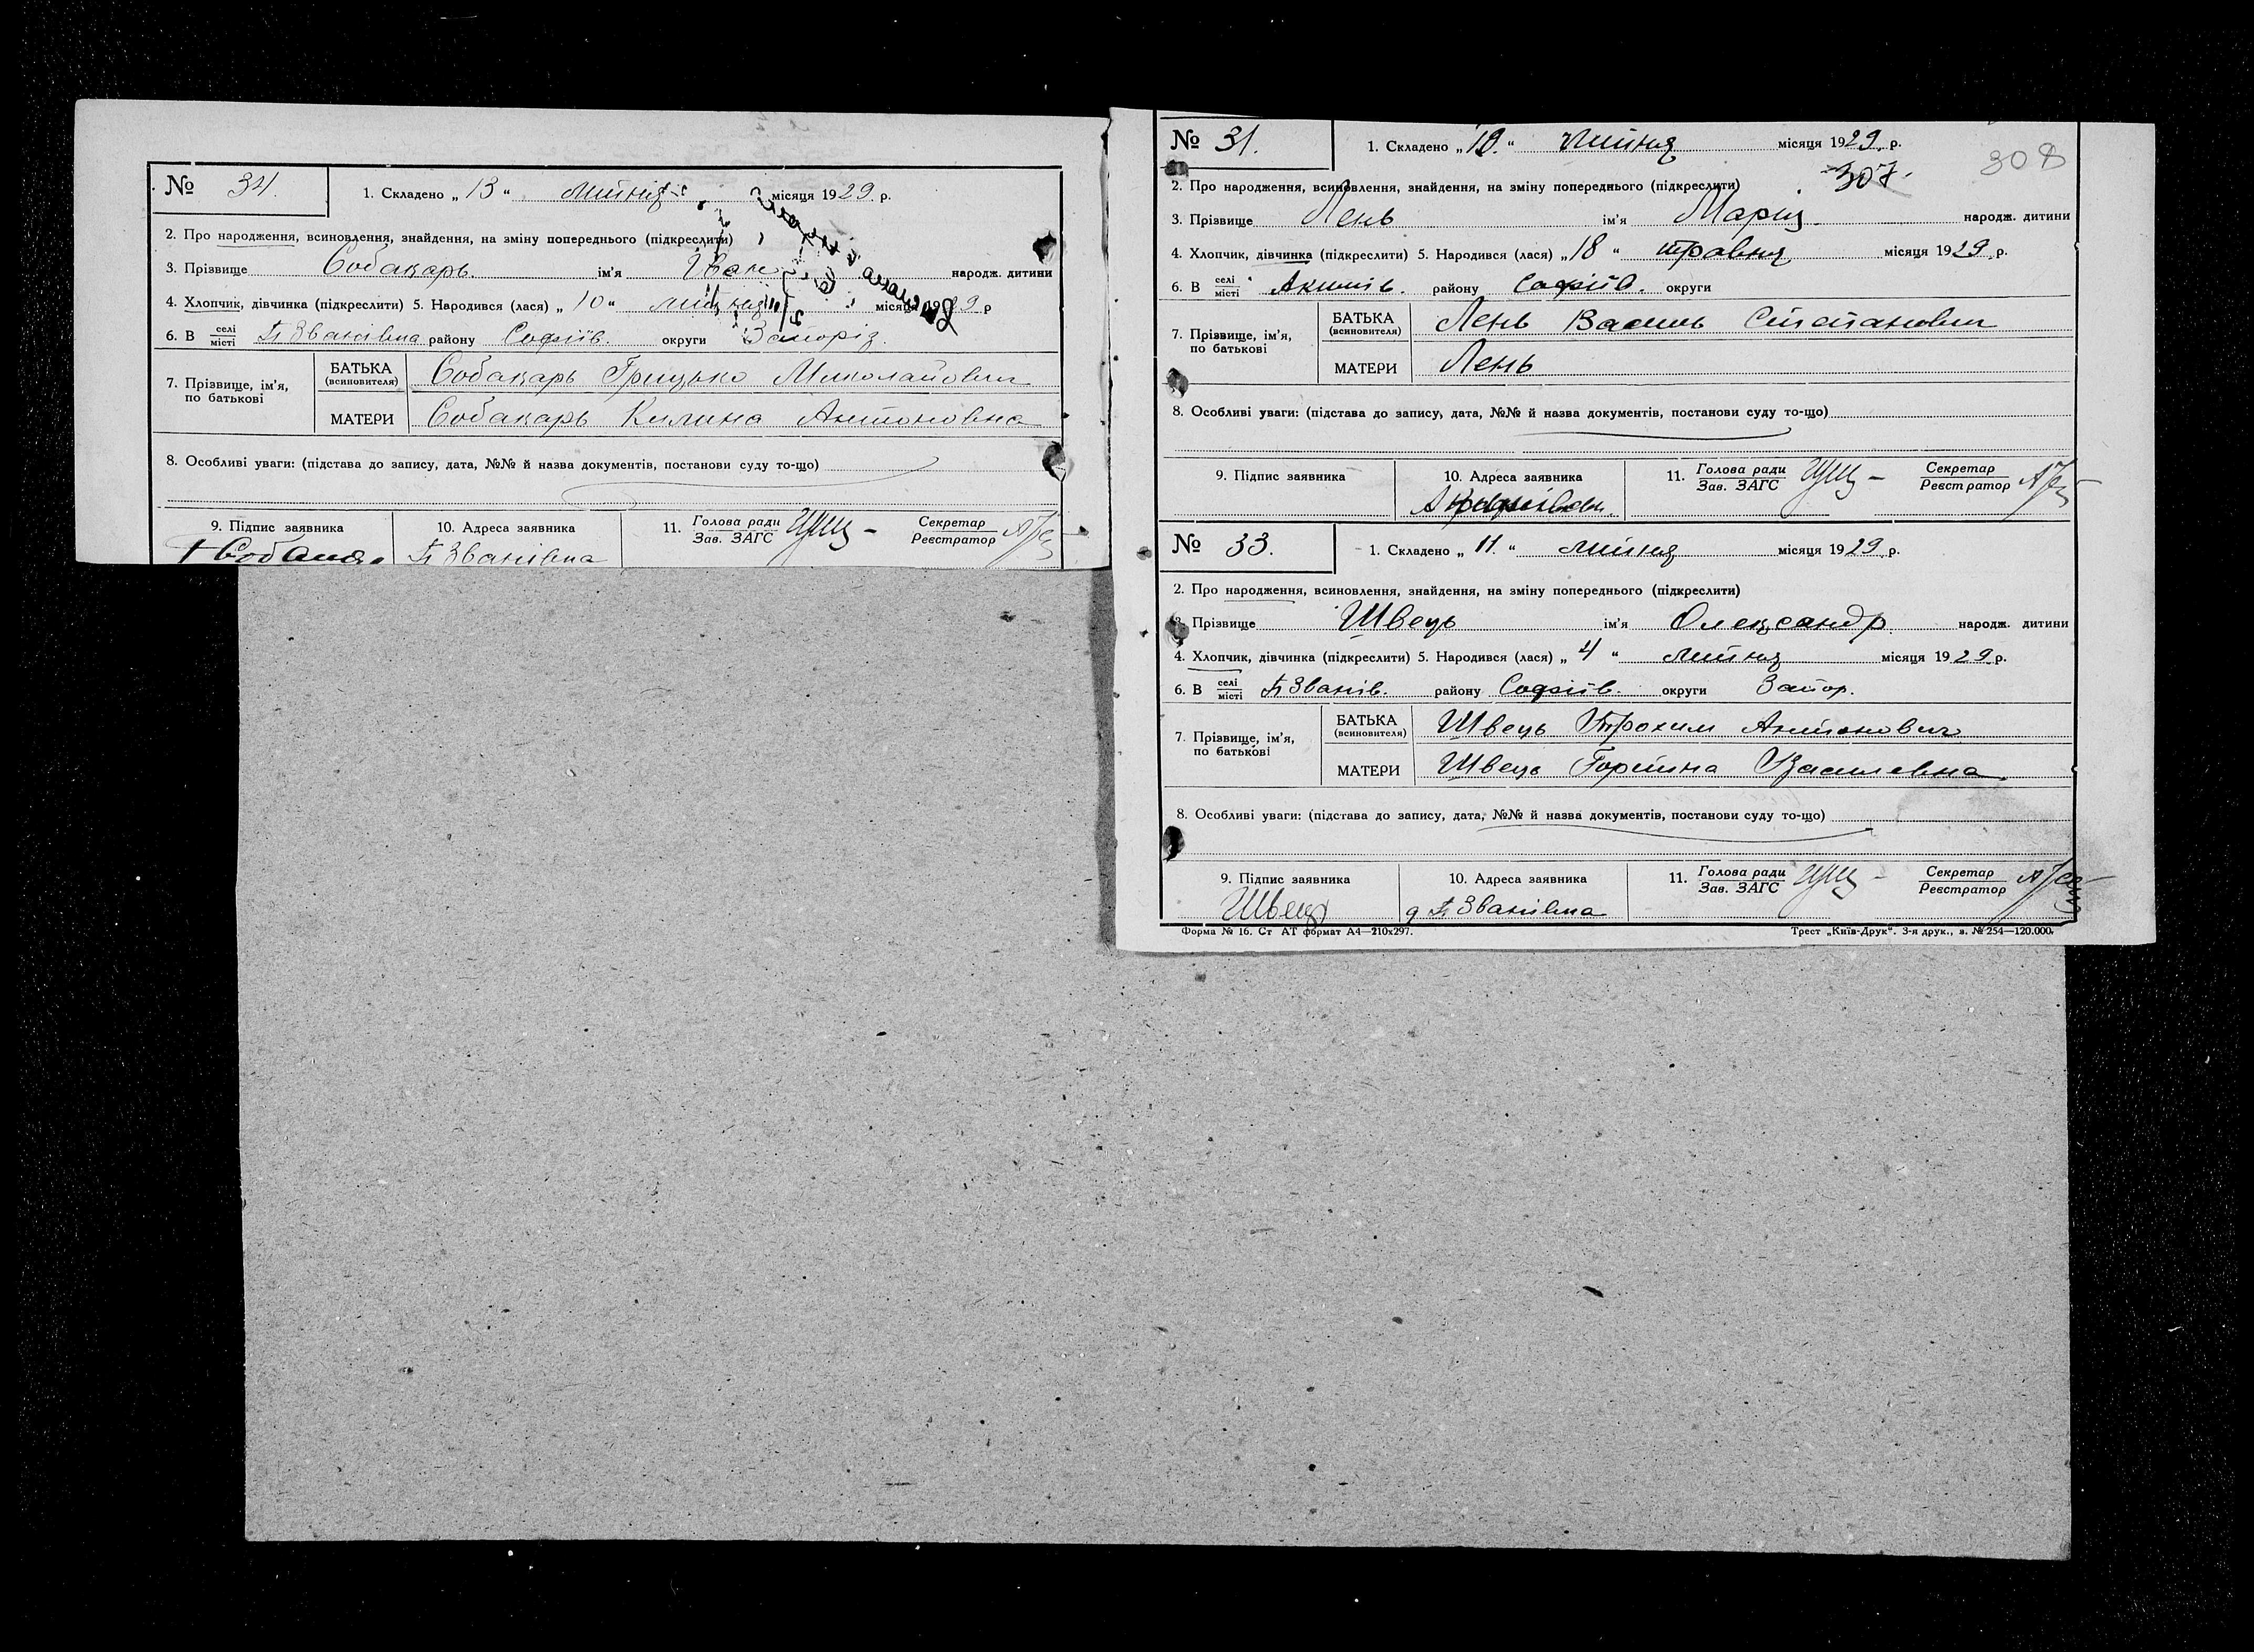 № 34. 1. Складено „ 13 “ липня місяця 1929 р.
2. Про народження, всиновлення, знайдення, на зміну попереднього (підкреслити)
3. Прізвище Собакарь ім’я Іван народж. дитини
4. Хлопчик, дівчинка (підкреслити) 5. Народився (лася) „ 10 “ липня місяця 1929 р
6. В селі місті Званівка району Софіїв. округи Запоріз.
7. Прізвище, ім’я, по батькові
БАТЬКА (всиновителя) Собакарь Грицько Миколайович
МАТЕРИ Собакарь Килина Антоновна
8. Особливі уваги: (підстава до запису, дата, №№ й назва документів, постанови суду то-що)
9. Підпис заявника 10. Адреса заявника 11. Голова ради Зав. ЗАГС Секретар Реєстратор
Званівка
№ 31. 1. Складено „ 10. “ липня місяця 1929. р.
307. 308
2. Про народження, всиновлення, знайдення, на зміну попереднього (підкреслити)
3. Прізвище Лень ім’я Мария народж. дитини
4. Хлопчик, дівчинка (підкреслити) 5. Народився (лася) „ 18 “ травня місяця 1929 р.
6. В селі місті Акимів. району Софіїв. округи
7. Прізвище, ім’я, по батькові
БАТЬКА (всиновителя) Лень Василь Степанович
МАТЕРИ Лень
8. Особливі уваги: (підстава до запису, дата, №№ й назва документів, постанови суду то-що)
9. Підпис заявника 10. Адреса заявника 11. Голова ради Зав. ЗАГС Секретар Реєстратор
№ 33. 1. Складено „ 11. “ липня місяця 1929. р.
2. Про народження, всиновлення, знайдення, на зміну попереднього (підкреслити)
3. Прізвище Швець ім’я Олександр. народж. дитини
4. Хлопчик, дівчинка (підкреслити) 5. Народився (лася) „ 4 “ липня місяця 1929 р.
6. В селі місті Званів. району Софіїв. округи Запор.
7. Прізвище, ім’я, по батькові
БАТЬКА (всиновителя) Швець Трохим Антонович
МАТЕРИ Швець Горпина Василевна
8. Особливі уваги: (підстава до запису, дата, №№ й назва документів, постанови суду то-що)
9. Підпис заявника 10. Адреса заявника 11. Голова ради Зав. ЗАГС Секретар Реєстратор
Швець Званівка
Форма № 16. Ст АТ формат А4—210х297. Трест „Київ-Друк“. 3-я друк., з. № 254—120.000.